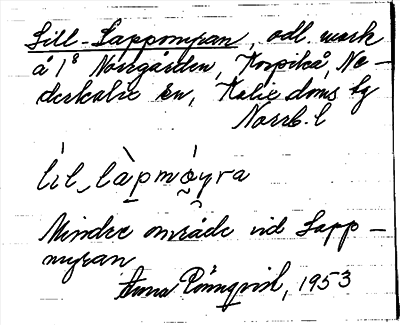 Lill-Lappmyran, odl. mark
å 1⁸ Norrgården, Korpikå, Ne-
derkalix sn, Kalix doms. lg
Norrb. l
lìl_làpmǫ́yra
Mindre område vid Lapp-
myran
Anna Rönnqvist, 1953